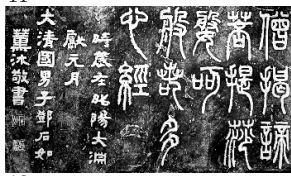 僧揭諦
菩提莎
婆呵
般若多
心經
時歲在昭陽大淵
獻元月
大清國男子鄧石如
薰沐敬書